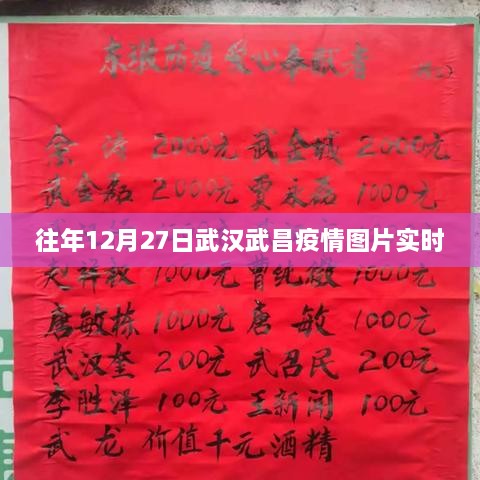 东坡防疫爱心奉献者
秦涛 2000元 武金城 2000元
武金磊 2000元 贾永磊 1000元
往年12月27日武汉武昌疫情图片实时
赵祥毅 1000元 曹纯俊 1000元
唐敏栋 1000元 唐敏 1000元
武汉奎 200元 武召民 200元
李胜泽 100元 王新闻 100元
武龙 价值千元酒精